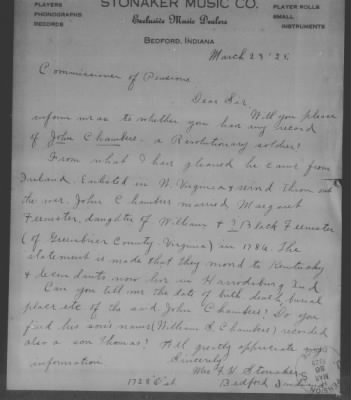 STONAKER MUSIC CO.
PLAYERS
PHONOGRAPHS
RECORDS
Exclusive Music Dealers
PLAYER ROLLS
SMALL
INSTRUMENTS
BEDFORD, INDIANA
March 23 '25.
Commissioner of Pensions
Dear Sir,
Will you please
inform me as to whether you have any record
of John Chambers - a Revolutionary soldier?
From what I have gleaned he came from
Ireland. Enlisted in W. Virginia & served thru out
the war. John Chambers married Margaret
Feemster, daughter of William & Black Feemster
(of Greenbrier County Virginia) in 1786. The
statement is made that they moved to Kentucky
& decendants now live in Harrodsburg Ind
Can you tell me the date of birth, death, burial
place etc of the said John Chambers? Do you
find his son's name (William Chambers) recorded
also a son Thomas? Will greatly appreciate any
information
Sincerely
Mrs. Stonaker
1728 "
Bedford, Indiana